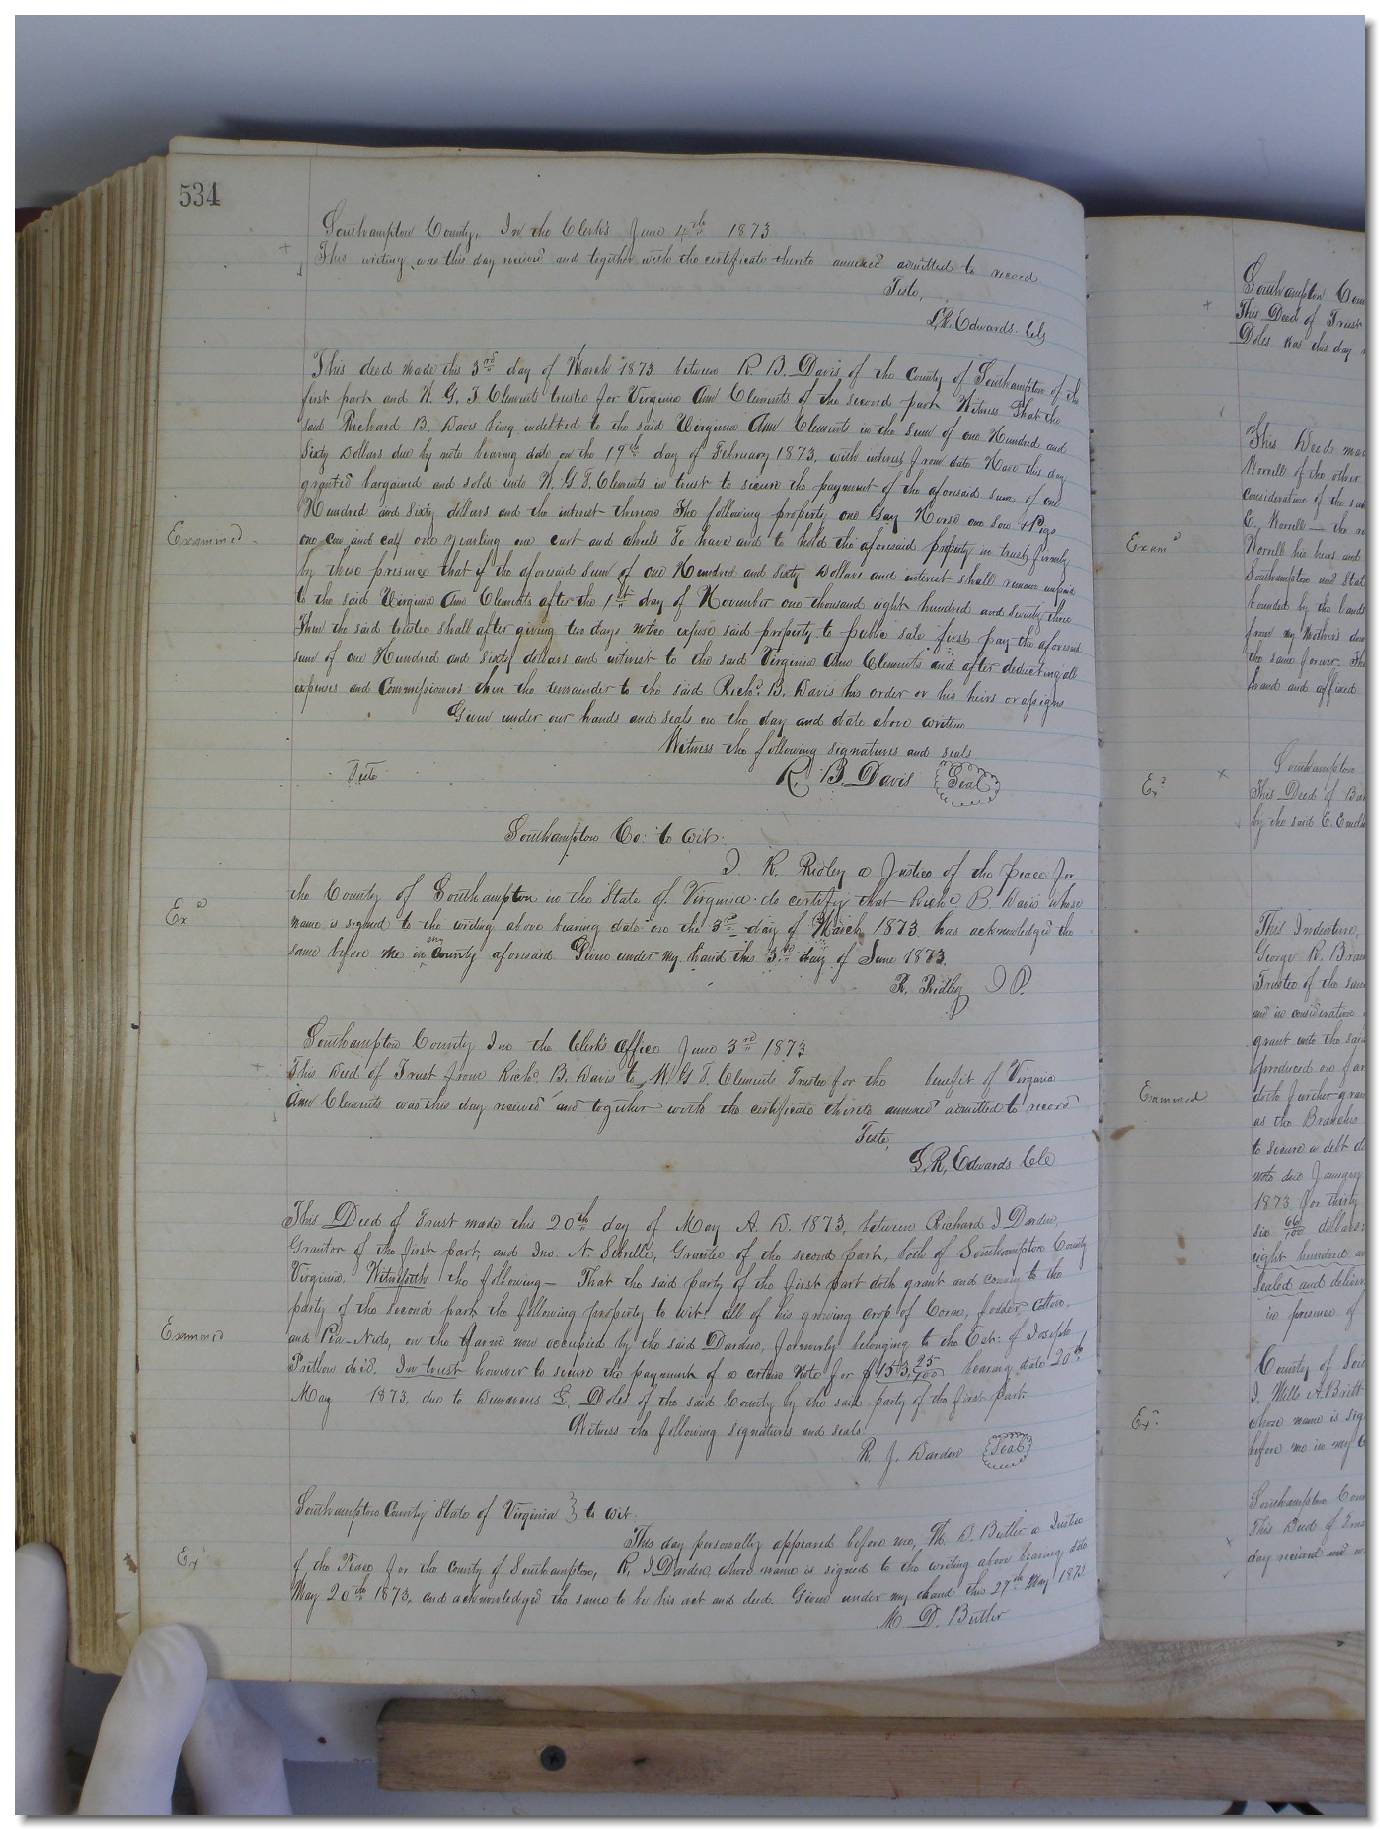 534
Southampton County, In the Clerk's June 4th 1873
This writing was this day received and together with the certificate thereto annexed admitted to record
Teste,
L. R. Edwards. Clk
This deed made this 3rd day of March 1873 between R B. Davis of the County of Southampton of the
first part and W. G. T. Clements trustee for Virginia Ann Clements of the second part Witness That the
said Richard B. Davis being indebted to the said Virginia Ann Clements in the sum of one Hundred and
Sixty Dollars due by note bearing date on the 19th day of February 1873, with interest from date Have this day
granted bargained and sold unto W. G. T. Clements in trust to secure the payment of the aforesaid sum of one
Hundred and Sixty dollars and the interest thereon The following property one Bay Horse one Sow & Pigs
Examined
one cow and calf one yearling one cart and wheels To have and to hold the aforesaid property in trust firmly
by these presence that if the aforesaid Sum of one Hundred and Sixty Dollars and interest shall remain unpaid
to the said Virginia Ann Clements after the 1st day of November one thousand eight hundred and Seventy three
Then the said trustee shall after giving ten days notice expose said property to public sale first pay the aforesaid
sum of one Hundred and Sixty dollars and interest to the said Virginia Ann Clements and after deducting all
expenses and Commissioners then the remainder to the said Richd. B. Davis his order or his heirs or assigns
Given under our hands and seals on the day and date above written
Witness the following signatures and seals
Teste R. B. Davis Seal
Southampton Co: to wit:
I R. Ridley a Justice of the peace for
the County of Southampton in the State of Virginia do certify that Richd. B. Davis whose
Exd
name is signed to the writing above bearing date on the 3rd day of March 1873 has acknowledged the
same before me in my County aforesaid Given under my hand this 3rd day of June 1873.
R. Ridley J P.
Southampton County In the Clerk's office June 3rd 1873
This Deed of Trust from Richd. B. Davis to W. G T. Clements Trustee for the benefit of Virginia
Ann Clements was this day received and together with the certificate thereto annexed admitted to record
Teste,
L. R. Edwards Clk
This Deed of Trust made this 20th day of May A. D. 1873, between Richard J Darden,
Grantor of the first part, and Jno. N. Sebrell, Grantee of the second part, both of Southampton County
Virginia, Witnesseth the following— That the said party of the first part doth grant and convey to the
party of the second part the following property to wit: all of his growing crop of Corn, fodder, Cotton,
Examined
and Pea-Nuts, on the farm now occupied by the said Darden, formerly belonging to the Est: of Joseph
Pretlow decd. In trust however to secure the payment of a certain Note for $153.25/100 bearing date 20th
May 1873, due to E. Doles of the said County by the said party of the first part
Witness the following signatures and seals
R. J. Darden Seal
Southampton County State of Virginia } to wit.
This day personally appeared before me, M. D. Butler a Justice
Exd
of the Peace for the County of Southampton, R. J Darden, whose name is signed to the writing above bearing date
May 20th 1873, and acknowledged the same to be his act and deed. Given under my hand this 27th May 1873
M. D. Butler
Southampton Coun
This Deed of Trust
Doles was this day
This Deed mad
Worrell of the other
consideration of the su
Examd
E. Worrell — the
Worrell his heirs and
Southampton and Stat
bounded by the lands
from my Mother's
the same forever.
hand and affixed
Southampton
Exd
This Deed of Bar
by the said E.
This Indenture,
George R. Bra
Trustee of the
and in consideration
grant unto the said
produced on
Examined
doth further grant
as the Branches
to secure a debt d
note due January
1873 for thirty
six 66/100 dollars
eight hundred an
Sealed and deliver
in presence of
County of Sou
I, Mills A. Britt
Exd
whose name is sig
before me in my C
Southampton Coun
This Deed of Trus
day received and